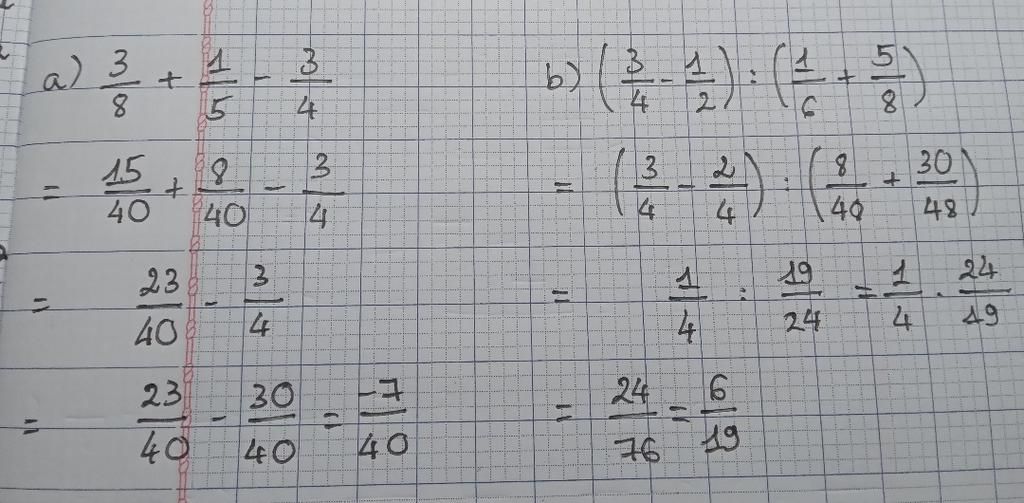 a) 3/8 + 1/5 - 3/4
= 15/40 + 8/40 - 3/4
= 23/40 - 3/4
= 23/40 - 30/40 = -7/40
b) (3/4 - 1/2) : (1/6 + 5/8)
= (3/4 - 2/4) : (8/48 + 30/48)
= 1/4 : 19/24 = 1/4 . 24/19
= 24/76 = 6/19